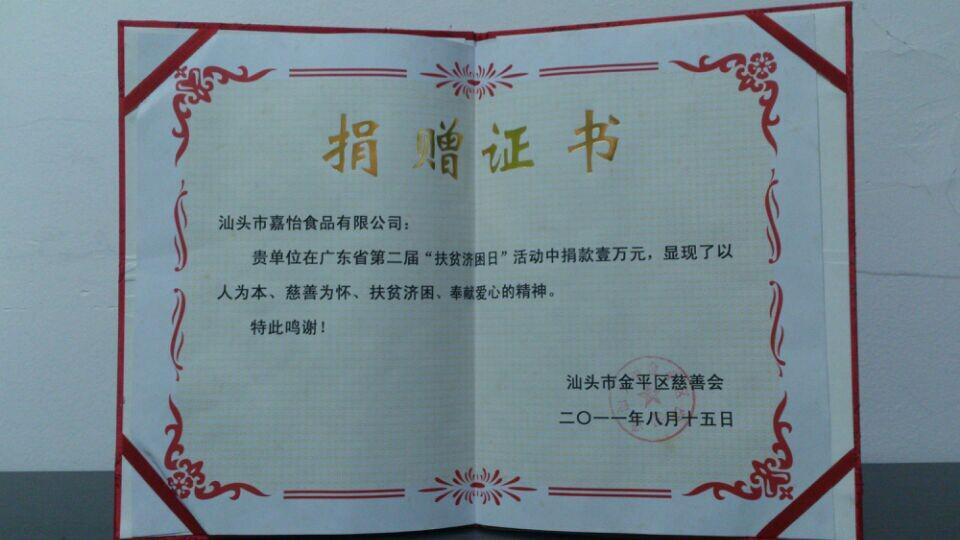 捐赠证书
汕头市嘉怡食品有限公司：
贵单位在广东省第二届“扶贫济困日”活动中捐款壹万元，显现了以
人为本、慈善为怀、扶贫济困、奉献爱心的精神。
特此鸣谢！
汕头市金平区慈善会
二〇一一年八月十五日